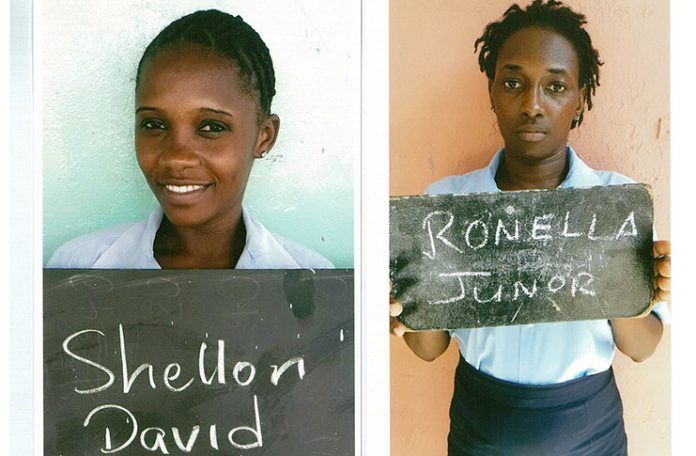 Shellon
David
RONELLA
JUNOR